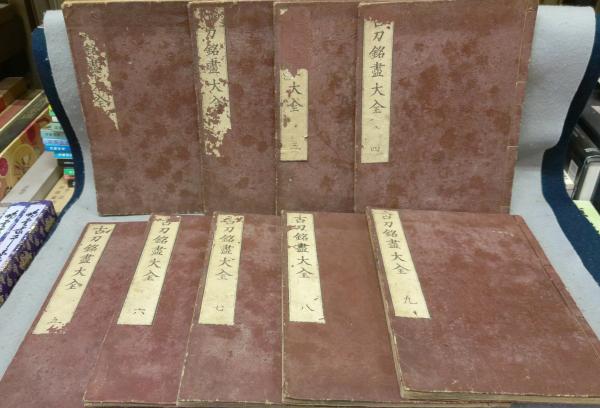 銘盡大全
刀銘盡大全
大全 三
刀銘盡大全 四
古刀銘盡大全 五
古刀銘盡大全 六
古刀銘盡大全 七
古刀銘盡大全 八
古刀銘盡大全 九